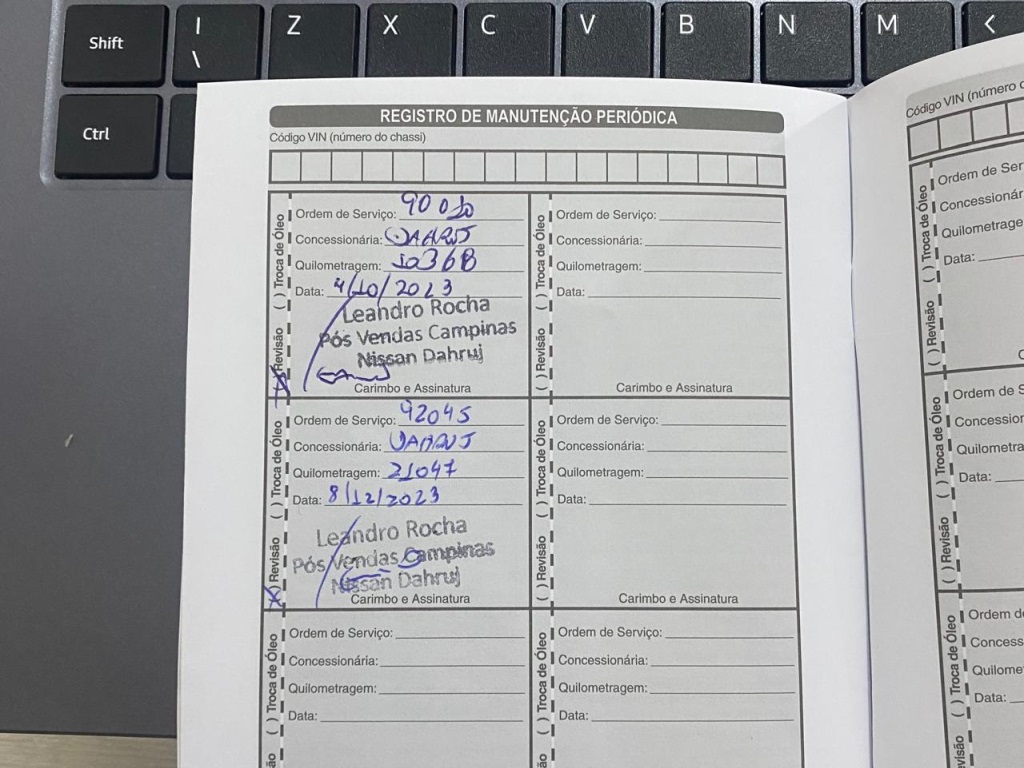 Shift
I
\
Z
X
C
V
B
N
M
<
Ctrl
REGISTRO DE MANUTENÇÃO PERIÓDICA
Código VIN (número do chassi)
( ) Revisão ( ) Troca de Óleo
Ordem de Serviço:
Concessionária:
Quilometragem: 10368
Data: 4/10/2023
Leandro Rocha
Pós Vendas Campinas
Nissan Dahruj
Carimbo e Assinatura
( ) Revisão ( ) Troca de Óleo
Ordem de Serviço:
Concessionária:
Quilometragem:
Data:
Carimbo e Assinatura
(X) Revisão ( ) Troca de Óleo
Ordem de Serviço: 92045
Concessionária:
Quilometragem: 21047
Data: 8/12/2023
Leandro Rocha
Pós Vendas Campinas
Nissan Dahruj
Carimbo e Assinatura
( ) Revisão ( ) Troca de Óleo
Ordem de Serviço:
Concessionária:
Quilometragem:
Data:
Carimbo e Assinatura
( ) Troca de Óleo
Ordem de Serviço:
Concessionária:
Quilometragem:
Data:
( ) Troca de Óleo
Ordem de Serviço:
Concessionária:
Quilometragem:
Data:
Código VIN (número
( ) Revisão ( ) Troca de Óleo
Ordem de Ser
Concessionár
Quilometrage
Data:
( ) Revisão ( ) Troca de Óleo
Ordem de S
Concession
Quilometra
Data:
( ) Troca de Óleo
Ordem d
Concess
Quilome
Data: